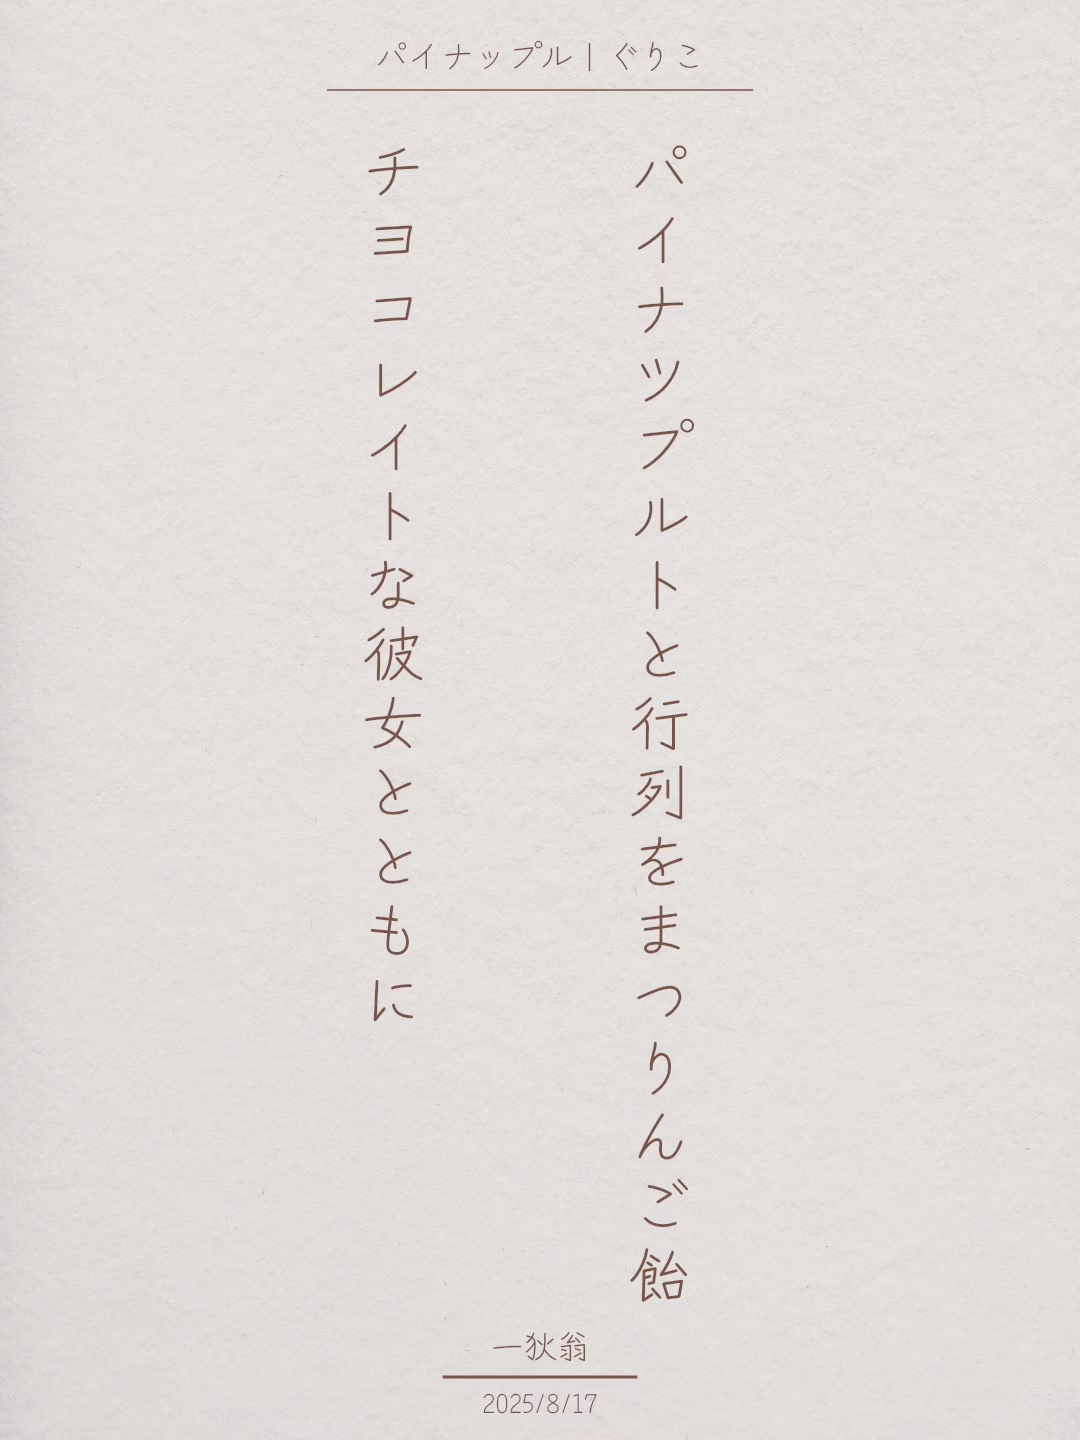 パイナップル｜ぐりこ
パイナツプルトと行列をまつりんご飴
チヨコレイトな彼女とともに
一狄翁
2025/8/17